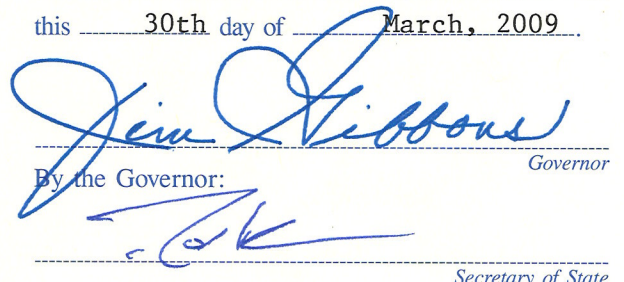 this 30th day of March, 2009.
Jim Gibbons
Governor
By the Governor:
Secretary of State